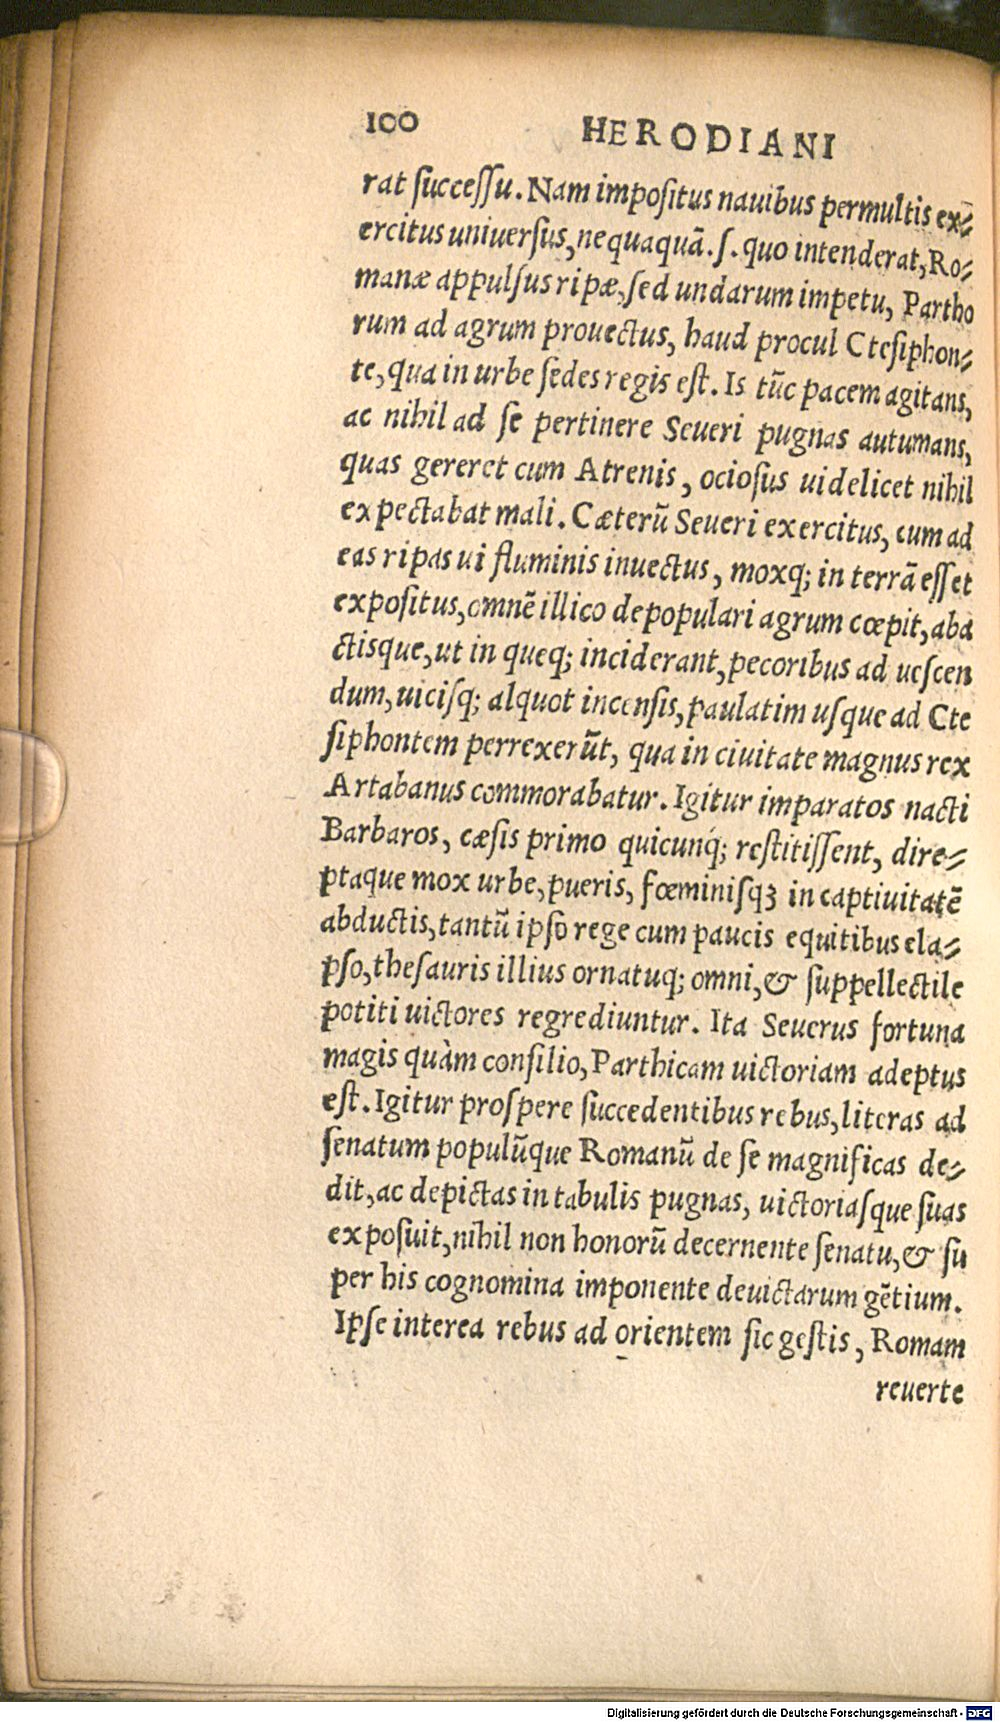 100 HERODIANI
rat ſucceſſu. Nam impoſitus nauibus permultis ex⸗
ercitus uniuerſus, nequaquã .ſ. quo intenderat, Ro⸗
manæ appulſus ripæ, ſed undarum impetu, Partho
rum ad agrum prouectus, haud procul Cteſiphon⸗
te, qua in urbe ſedes regis eſt. Is tũc pacem agitans,
ac nihil ad ſe pertinere Seueri pugnas autumans,
quas gereret cum Atrenis, ocioſus uidelicet nihil
expectabat mali. Cæterũ Seueri exercitus, cum ad
eas ripas ui fluminis inuectus, moxq; in terrã eſſet
expoſitus, omnẽ illico depopulari agrum cœpit, aba
ctisque, ut in queq; inciderant, pecoribus ad ueſcen
dum, uiciſq; alquot incenſis, paulatim uſque ad Cte
ſiphontem perrexerũt, qua in ciuitate magnus rex
Artabanus commorabatur. Igitur imparatos nacti
Barbaros, cæſis primo quicunq́; reſtitiſſent, dire⸗
ptaque mox urbe, pueris, fœminiſqꝫ in captiuitatẽ
abductis, tantũ ipſo rege cum paucis equitibus ela⸗
pſo, theſauris illius ornatuq; omni, & ſuppellectile
potiti uictores regrediuntur. Ita Seuerus fortuna
magis quàm conſilio, Parthicam uictoriam adeptus
eſt. Igitur proſpere ſuccedentibus rebus, literas ad
ſenatum populũque Romanũ de ſe magnificas de⸗
dit, ac depictas in tabulis pugnas, uictoriaſque ſuas
expoſuit, nihil non honorũ decernente ſenatu, & ſu
per his cognomina imponente deuictarum gẽtium.
Ipſe interea rebus ad orientem ſic geſtis, Romam
reuerte
Digitalisierung gefördert durch die Deutsche Forschungsgemeinschaft - DFG